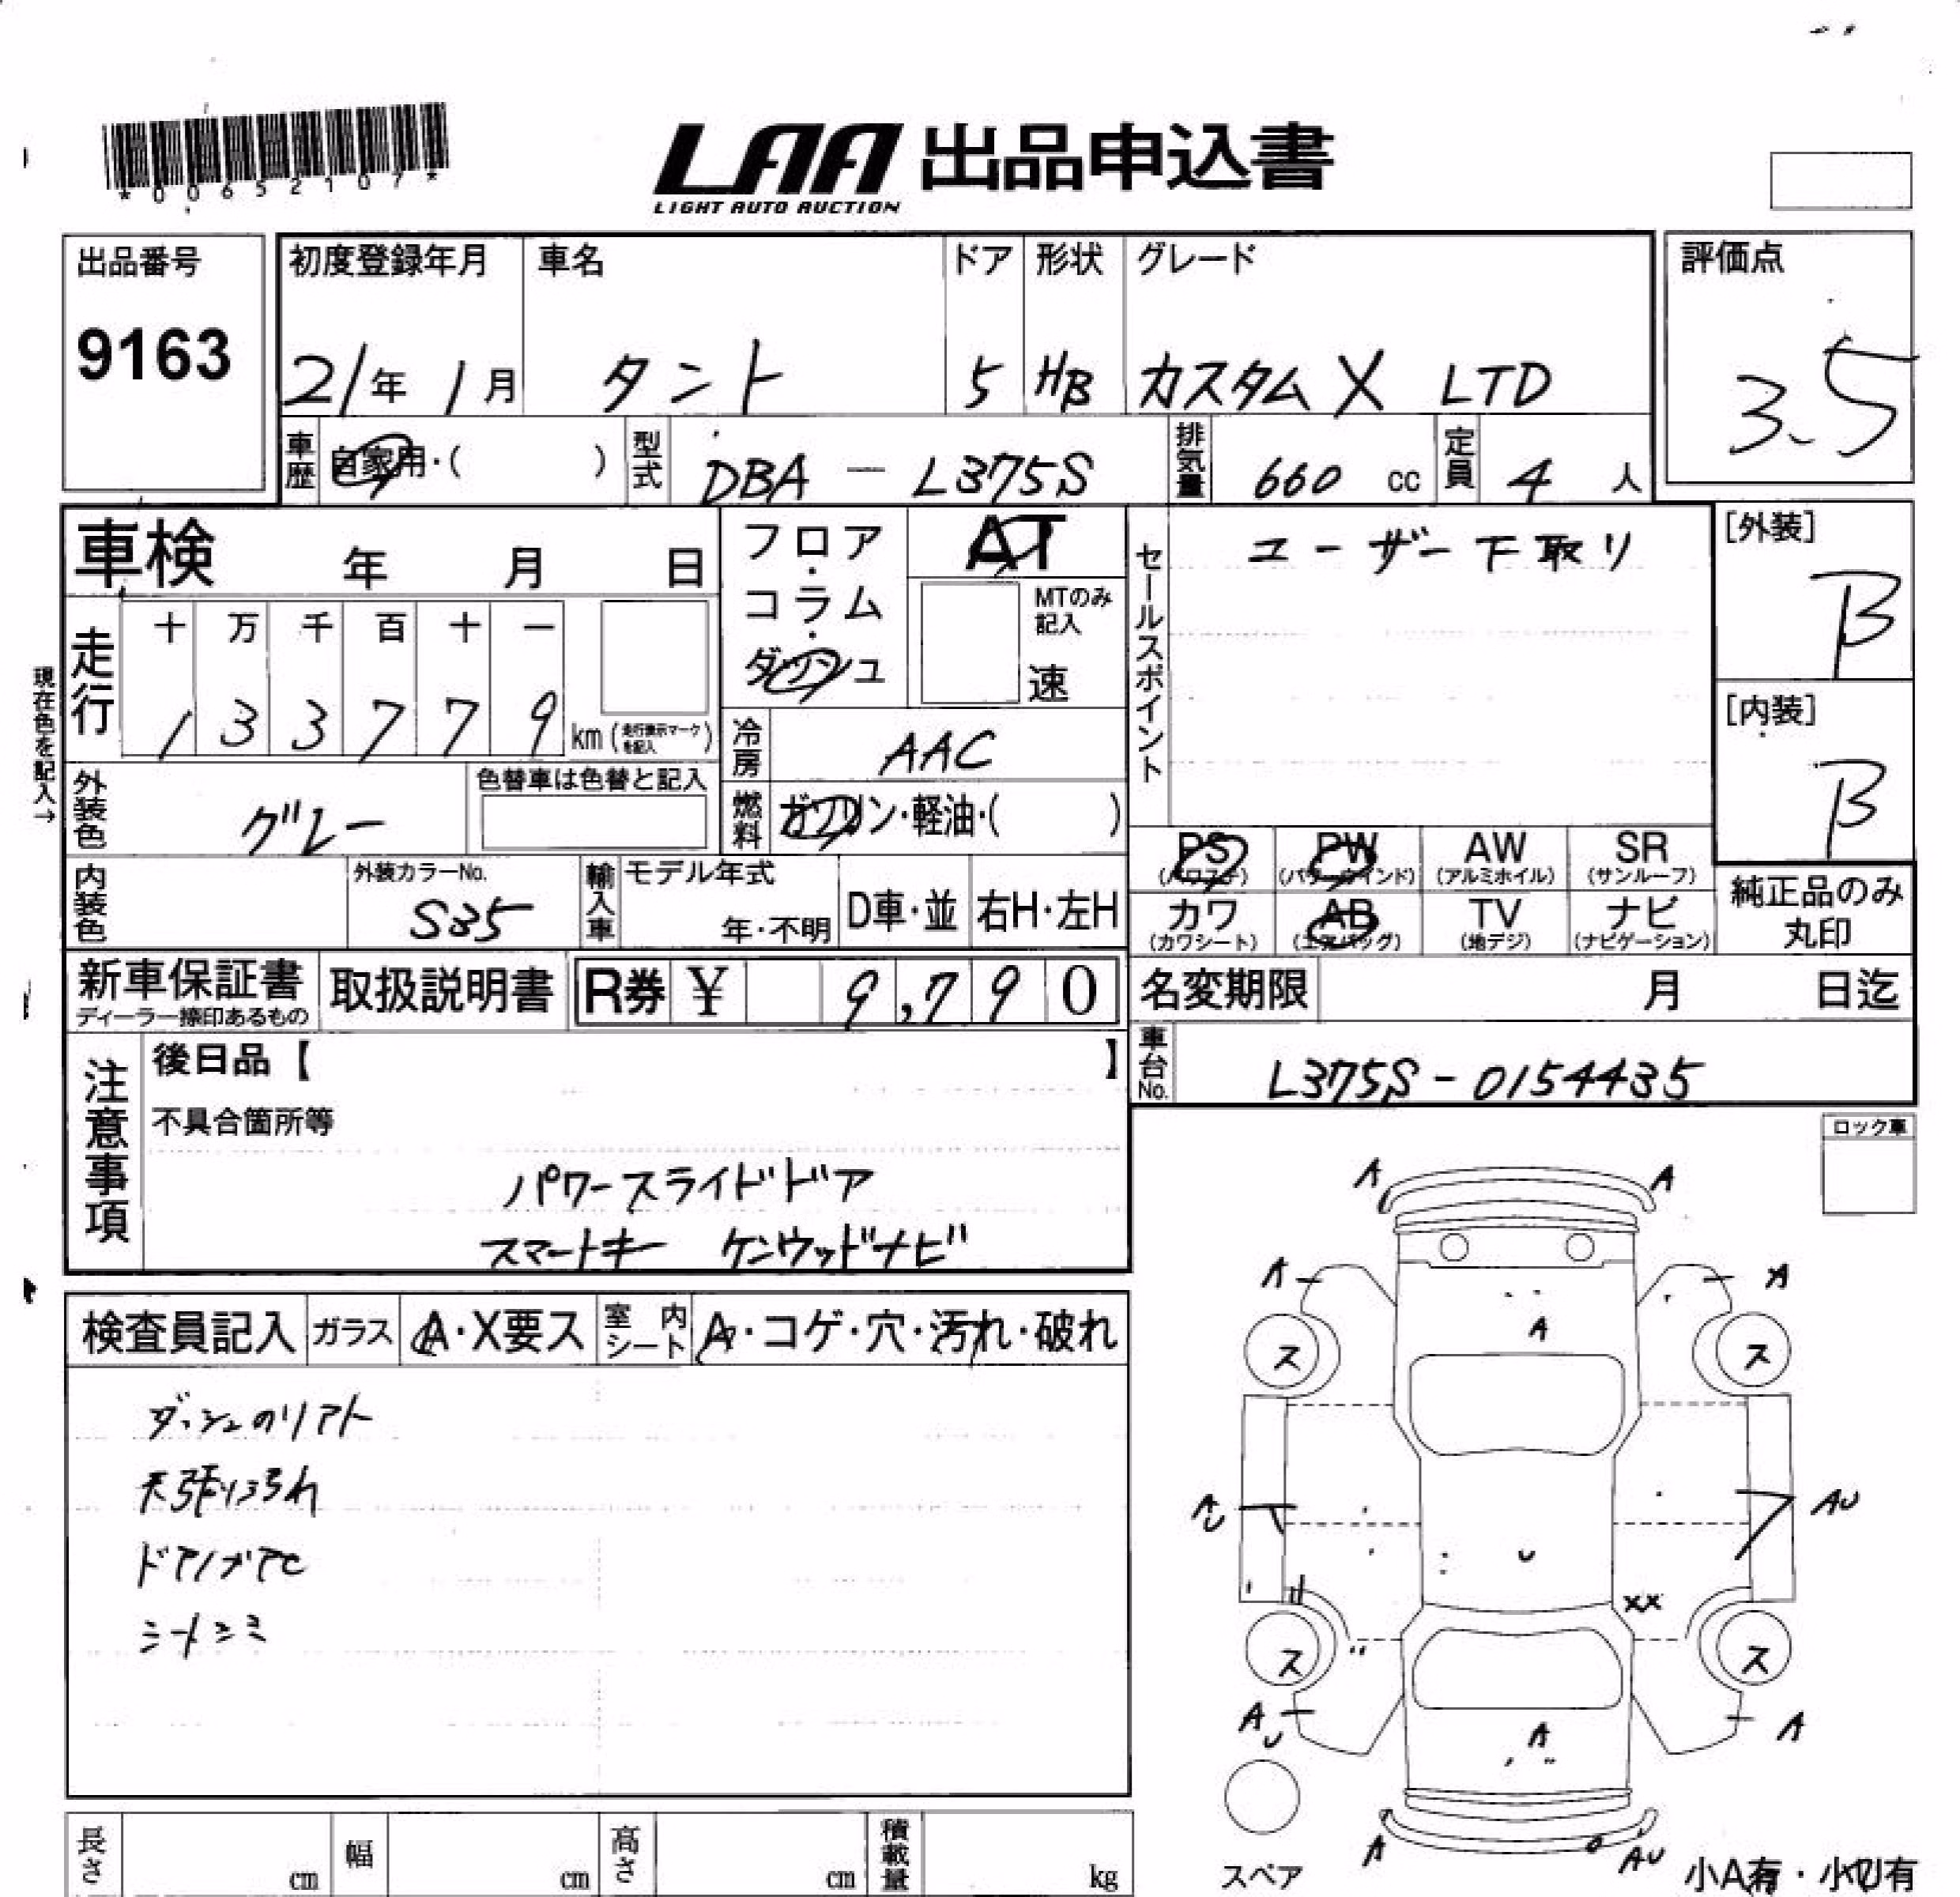 *00652107*
LAA 出品申込書
LIGHT AUTO AUCTION
出品番号
9163
初度登録年月 車名 ドア 形状 グレード
21年 1月 タント 5 HB カスタムX LTD
評価点
3.5
車歴 自家用・( ) 型式 DBA - L375S 排気量 660 cc 定員 4 人
車検 年 月 日
フロア・コラム・ダッシュ
AT
MTのみ記入
速
セールスポイント
ユーザー下取り
[外装]
B
[内装]
B
現在色を記入→
走行 十 万 千 百 十 一
1 3 3 7 7 9 km (走行表示マークを記入)
冷房 AAC
外装色 グレー 色替車は色替と記入
燃料 ガソリン・軽油・( )
PS PW AW SR
(パワステ) (パワーウインド) (アルミホイル) (サンルーフ)
カワ AB TV ナビ
(カワシート) (エアバッグ) (地デジ) (ナビゲーション)
純正品のみ
丸印
内装色 外装カラーNo. S35 輸入車 モデル年式 年・不明 D車・並 右H・左H
新車保証書 取扱説明書 R券 ¥ 9,790
ディーラー捺印あるもの
名変期限 月 日迄
車台No. L375S-0154435
注意事項
後日品【 】
不具合箇所等
パワースライドドア
スマートキー ケンウッドナビ
ロック車
検査員記入 ガラス A・X要ス 室内シート A・コゲ・穴・汚れ・破れ
ダッシュのリアト
天張り汚れ
シートシミ
A A
A A
A
ス ス
AU AU
U
XX
ス ス
AU A
A
A AU
スペア
小A有・小U有
長さ cm 幅 cm 高さ cm 積載量 kg